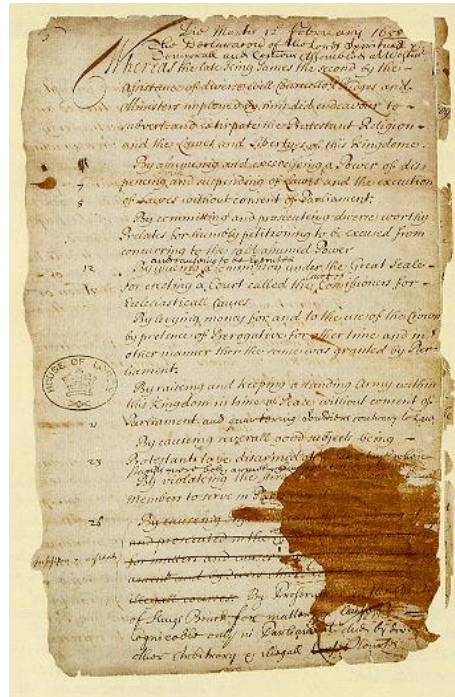 5
Die Martis 12° February 1688
the Declaration of the Lords Spirituall &
Temporall and Comons Assembled at
Whereas the late King James the second by the
Assistance of diverse evill Councellors Judges and
Ministers imployed by him did endeavour to
subvert and extirpate the Protestant Religion
and the Lawes and Libertyes of this Kingdome.
By assuming and exerciseing a Power of dis
7 pencing and suspending of Lawes and the execution
8 of Lawes without consent of Parliament.
By committing and prosecuting diverse worthy
Prelates for humbly petitioning to be excused from
concurring to the said assumed Power
and causing to be executed
12 By issueing a commission under the Great Seale
Court of
for erecting a Court called the Comissioners for
Ecclesiasticall Causes
By levying money for and to the use of the Crowne
by pretence of Prerogative for other time and in
other manner then the same was granted by Par
liament.
HOUSE OF LORDS
By raiseing and keeping a standing Army within
this Kingdom in time of Peace without consent of
Parliament and quartering souldiers contrary to Law
By causeing severall good subjects being
23 Protestants to be disarmed at
By violating the
members to serve in
25 By causeing
and prosecuted in the
for matters and causes
By
of Kings Bench for matters Causes
cognizable only in Parliament and by
other Arbitrary & illegall Courses